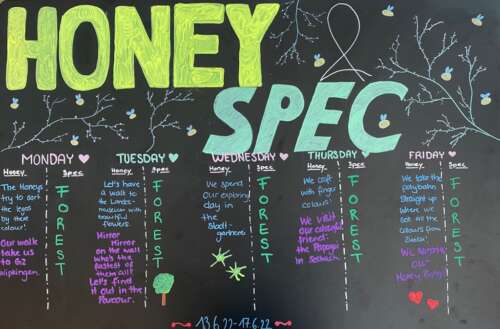 HONEY
&
SPEC
MONDAY
Honey
Spec
The Honeys
try to sort
the peas
by their
colour!
Our walk
take us
to GZ
Wipkingen.
FOREST
TUESDAY
Honey
Spec
Let's have
a walk to
the Landes-
museum with
beautiful
flowers.
Mirror
Mirror
on the wall
who's the
fastest of
them all?
Let's find
it out in the
Parcour.
FOREST
WEDNESDAY
Honey
Spec
We spend
our exploring
day in
the
Stadt-
gärtnerei
FOREST
THURSDAY
Honey
Spec
We craft
with finger
colours!
We visit
our colourful
friends:
the Papagei
in Seebach.
FOREST
FRIDAY
Honey
Spec
We take the
polybahn
straight up
where we
see all the
colours from
Zürich!
We
our
Honey
FOREST
13.6.22-17.6.22